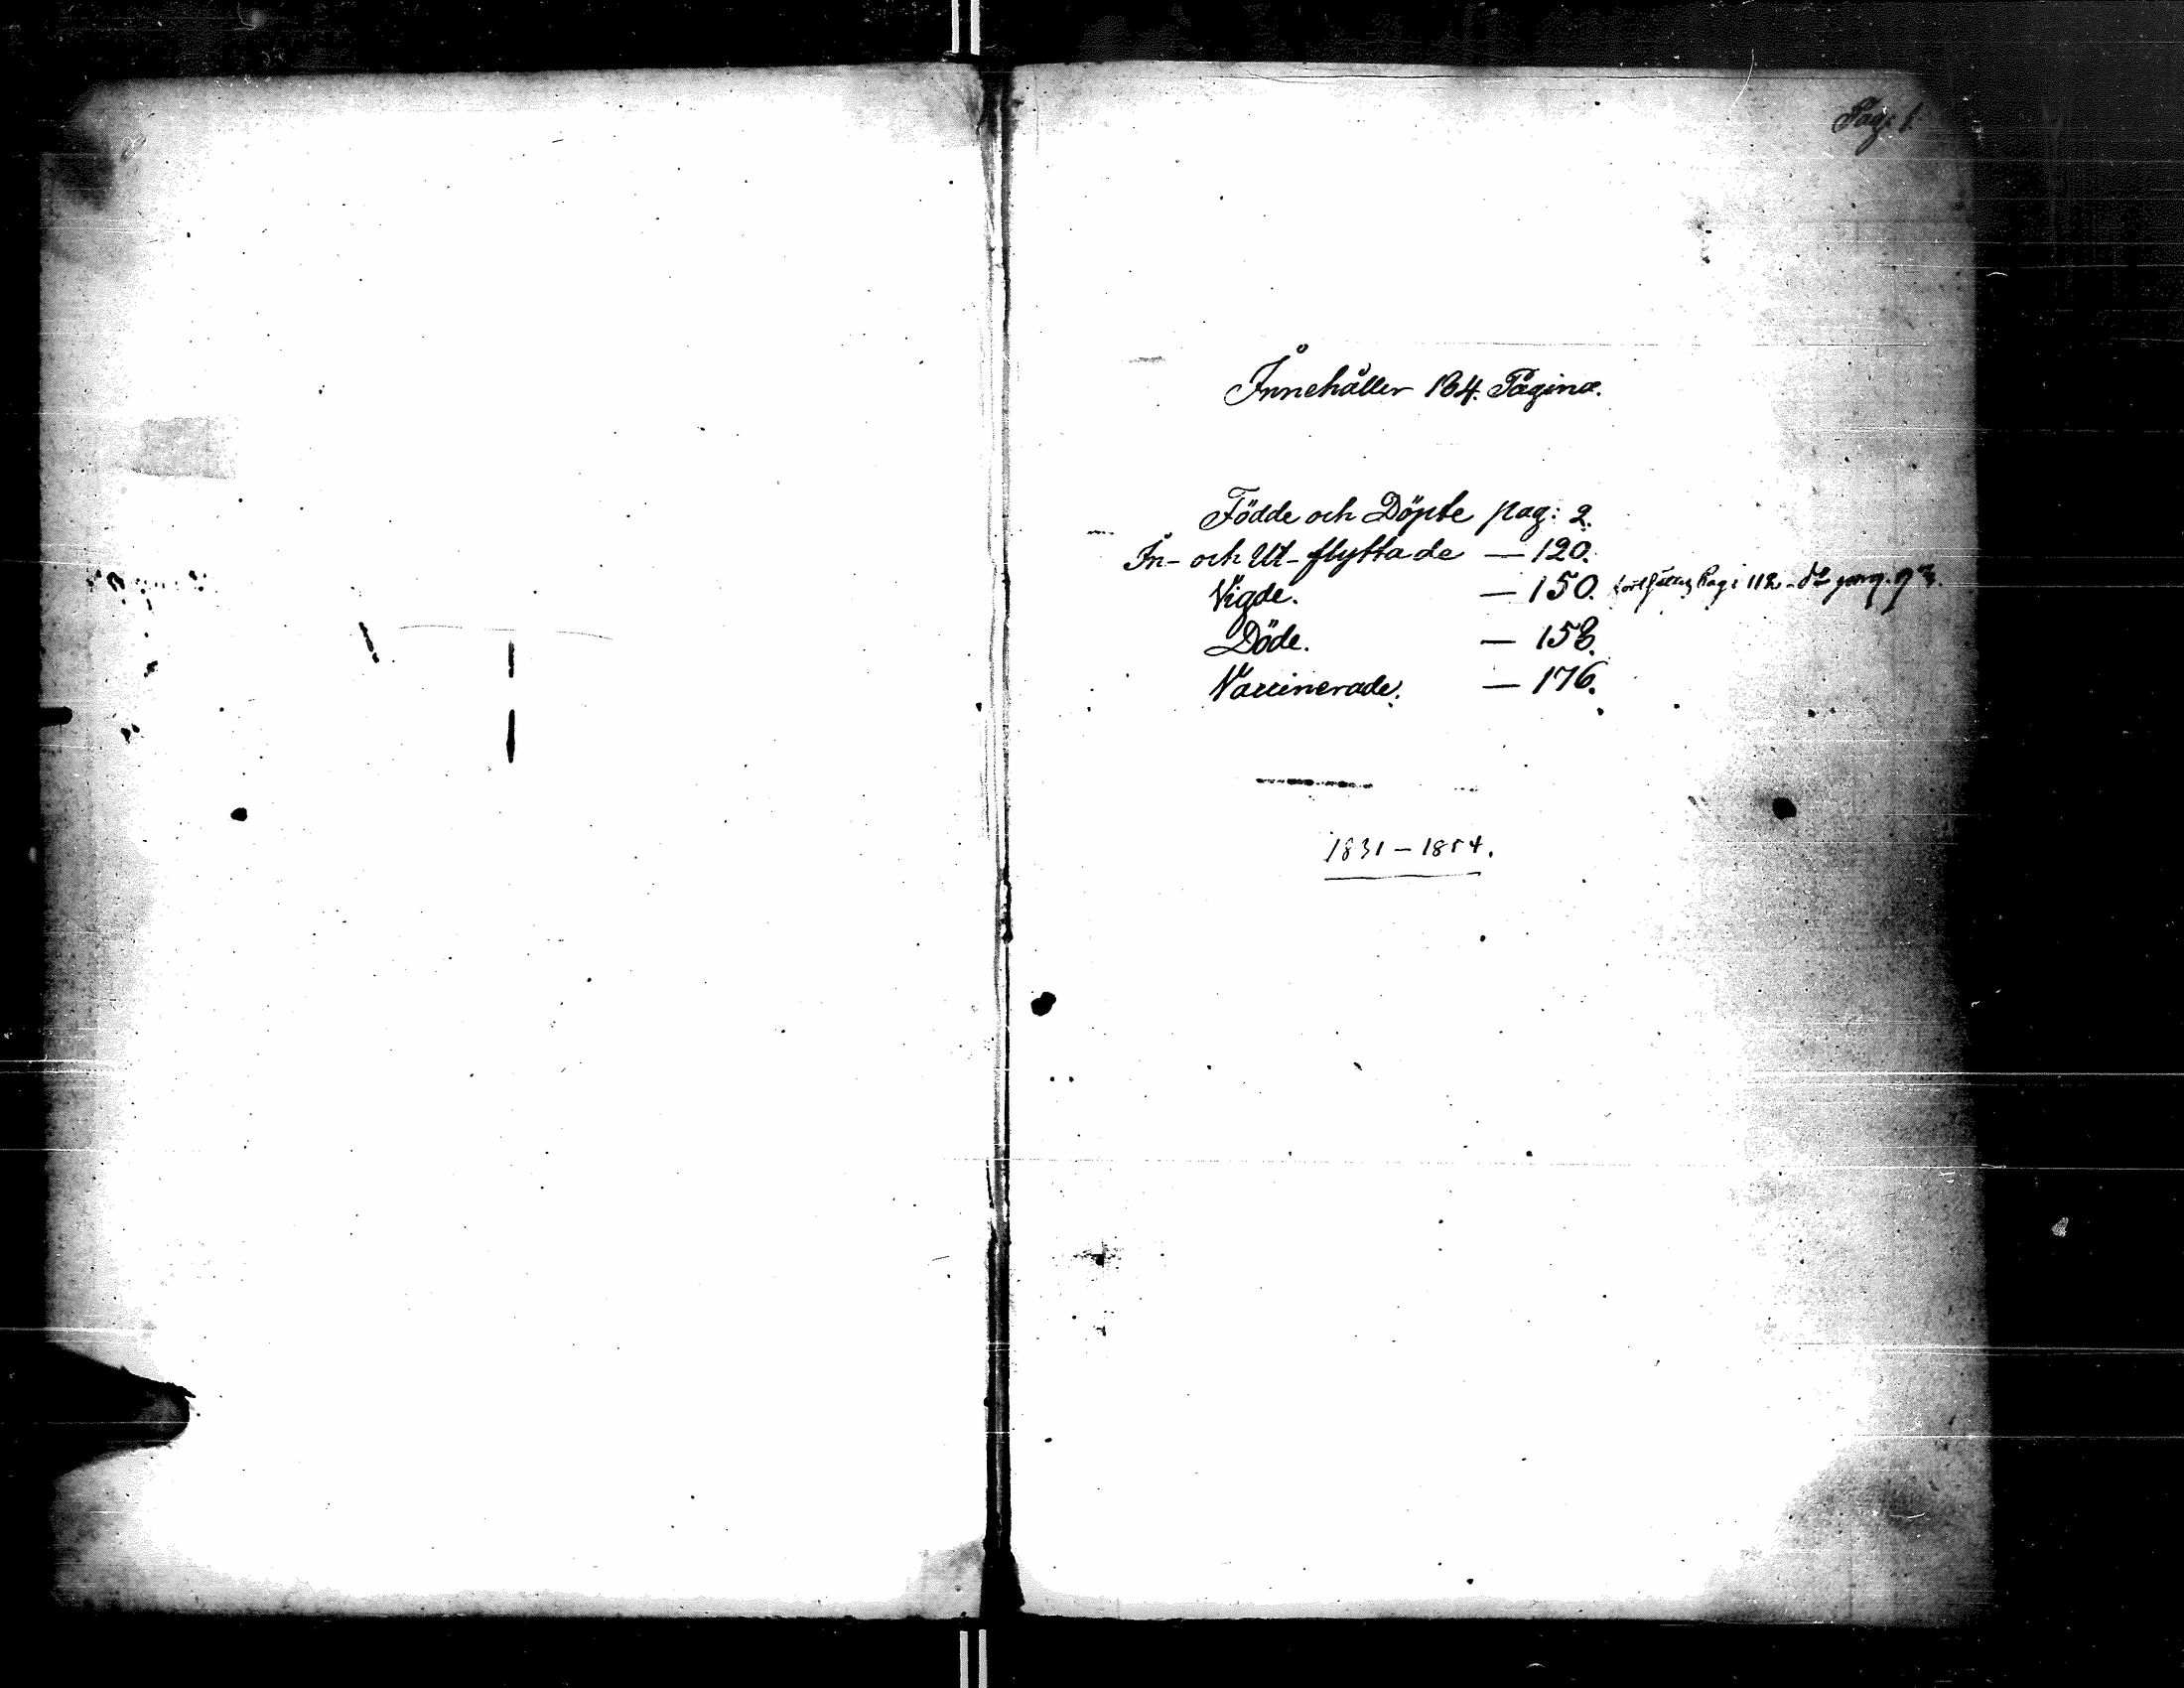 Pag. 1.
Innehåller 164. Pagina.
Födde och Döpte pag: 2.
In- och Ut-flyttade — 120.
Vigde. — 150. Pag: 112
Döde. — 158.
Vaccinerade. — 176.
1831 – 1854.